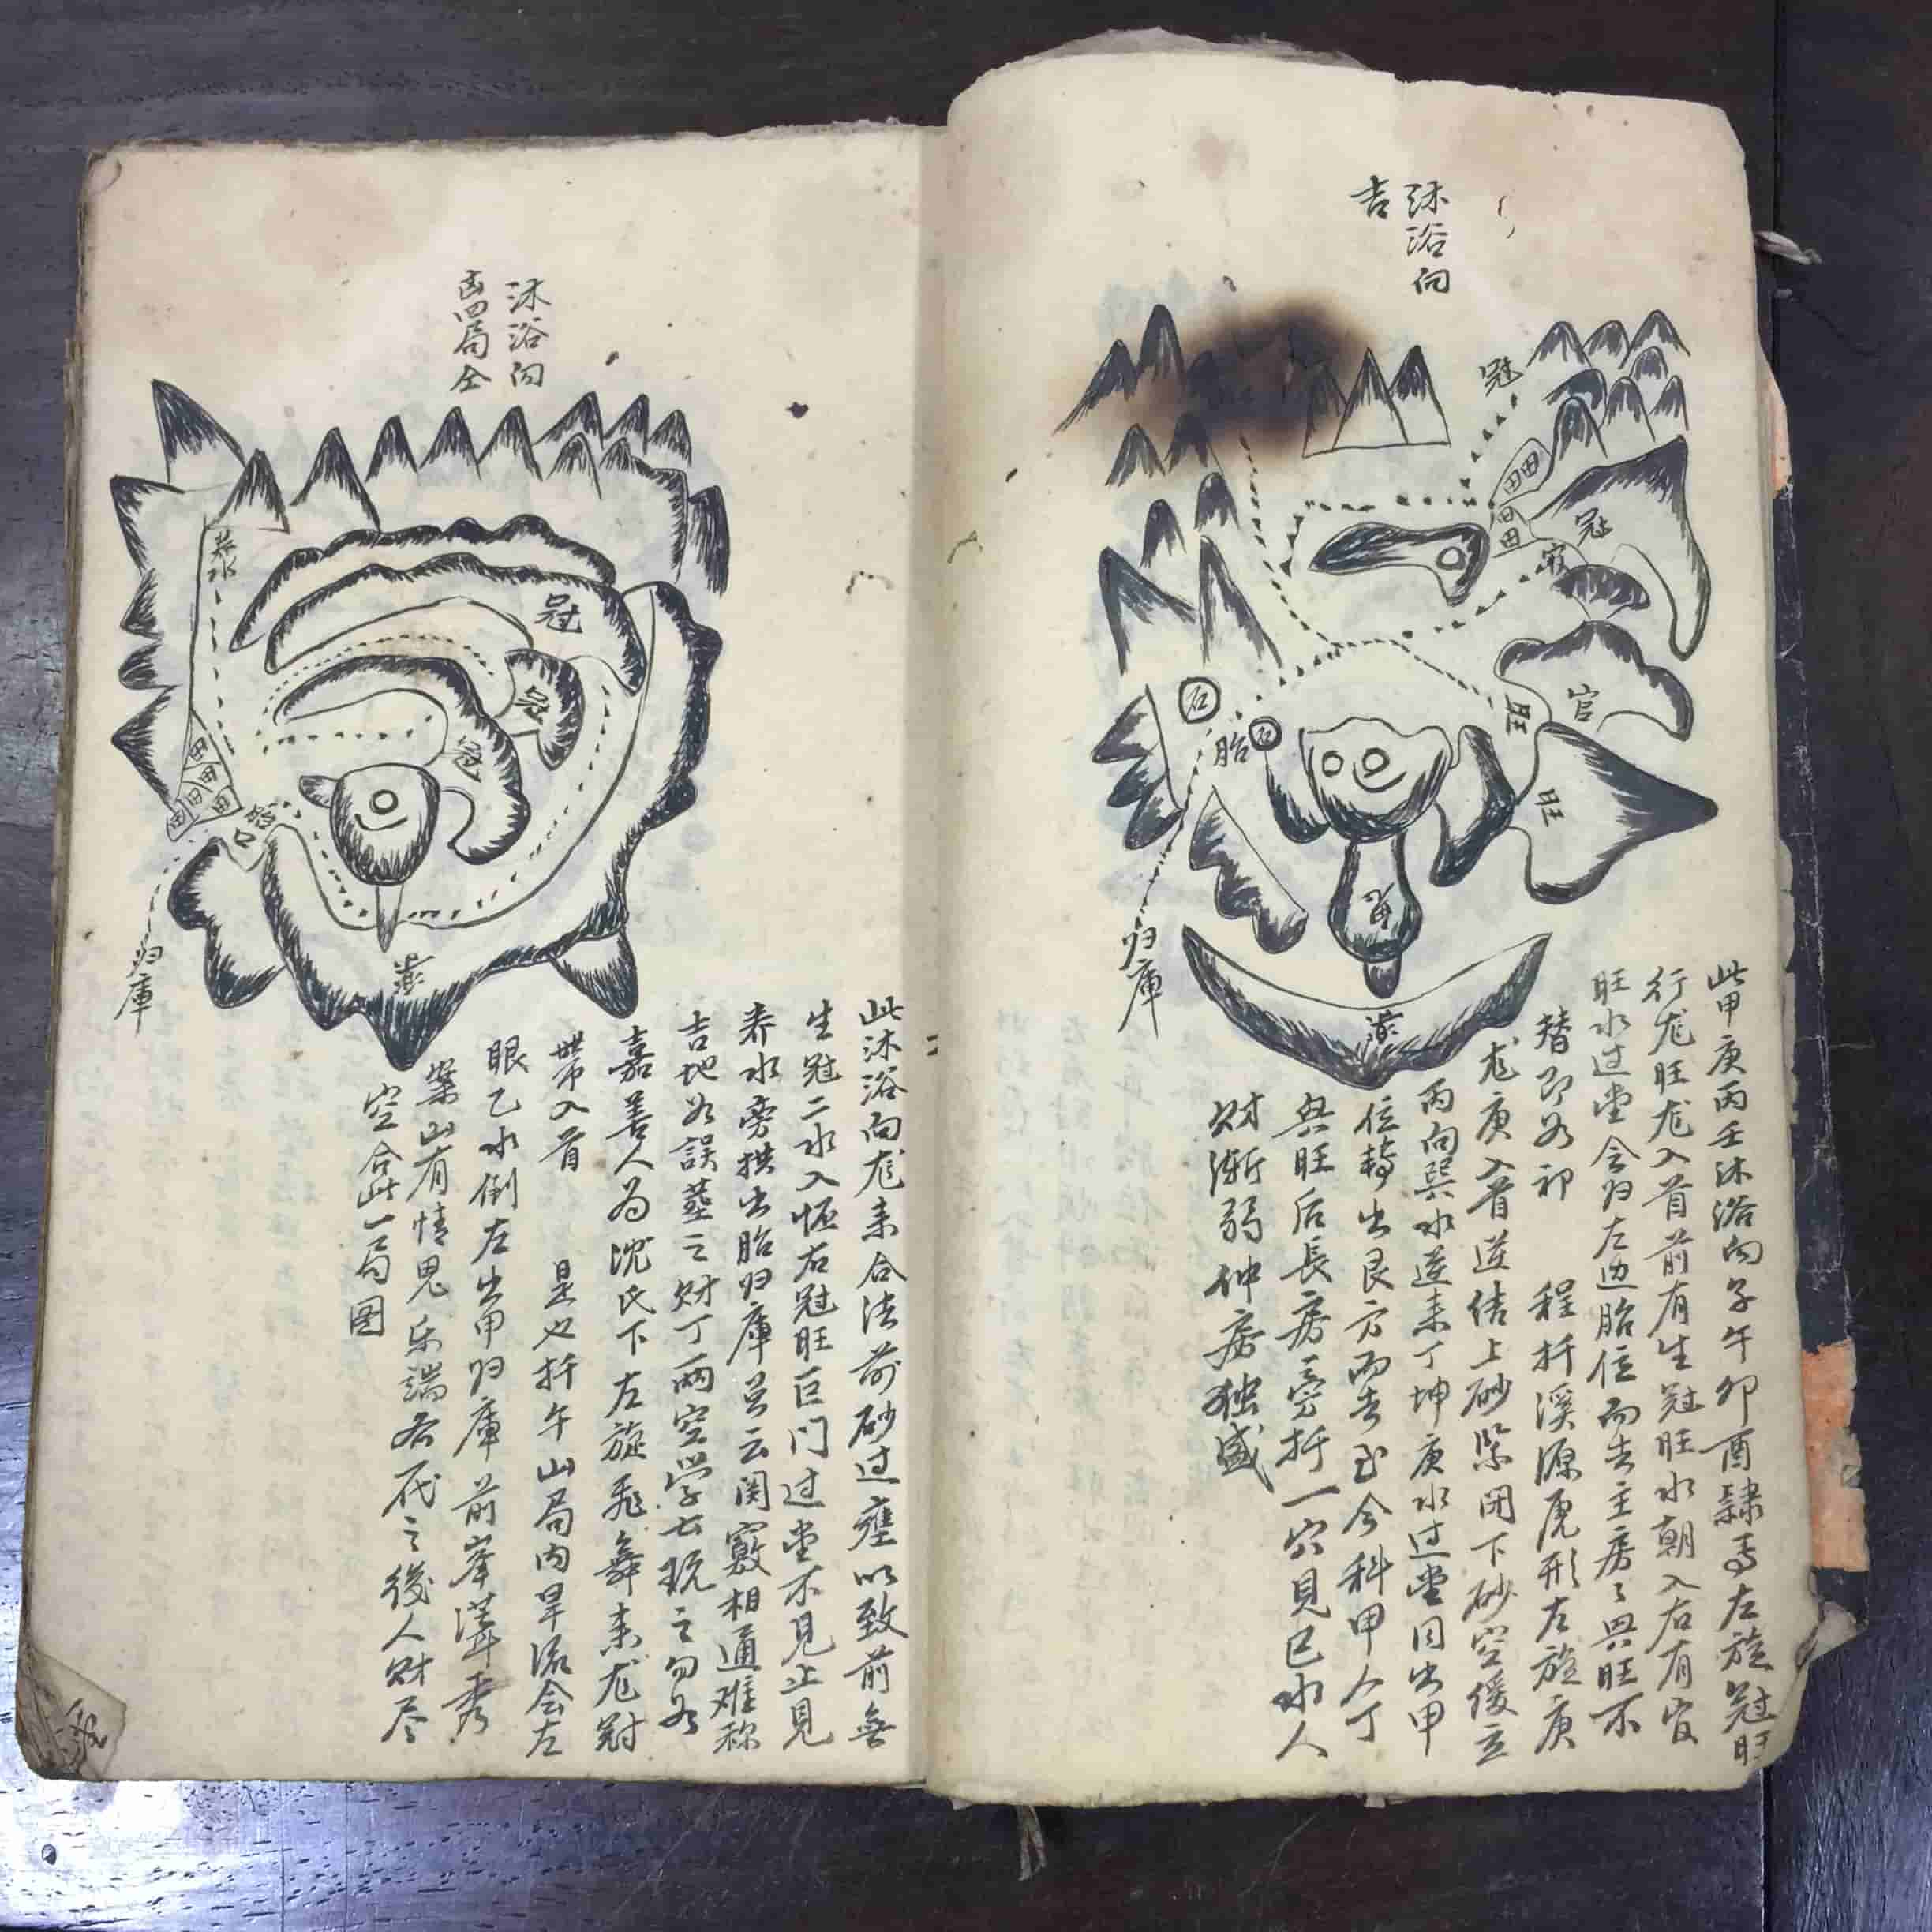 沐浴向
吉
冠
田田
田田
冠
官
旺
官
旺
石
石
胎
归庫
此甲庚丙壬沐浴向子午卯酉隸焉左旋冠旺
行龙旺龙入首前有生冠旺水朝入右有官
旺水过堂会归左边胎位而去主房々興旺不
替即如祁
程扦溪源虎形左旋庚
龙庚入首逆结上砂紧闭下砂空缓立
丙向巽水逆来丁坤庚水过堂同出甲
位转出艮方而去至今科甲人丁
興旺后長房旁扦一穴見巳水人
财漸弱仲房独盛
沐浴向
凶四局全
养水
冠
田
田田
田田
胎
口
归庫
此沐浴向龙来合法前砂过壅以致前無
生冠二水入怀右冠旺巨门过堂不見止見
养水旁拱出胎归庫
云関竅相通难称
吉地如誤葬之财丁両空学士玩之勿如
嘉善人为沈氏下左旋飛舞来龙冠
帶入首
是也扦午山局内旱流会左
眼乙水倒左出甲归庫前峯
秀
案山有情鬼乐端
之後人财尽
空合此一局图